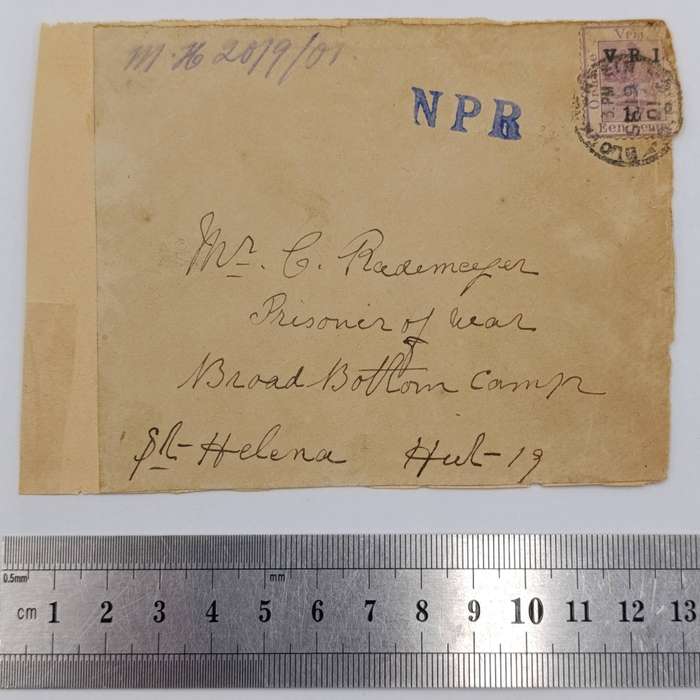 M.H 20/9/01.
NPR
Vrij
V.R.I.
Oranje
1d
Een Penny
3.PM
SE 19
01
Mr. C. Rademeyer
Prisoner of war
Broad Bottom Camp
St Helena Hut 19
0.5mm mm
cm 1 2 3 4 5 6 7 8 9 10 11 12 13